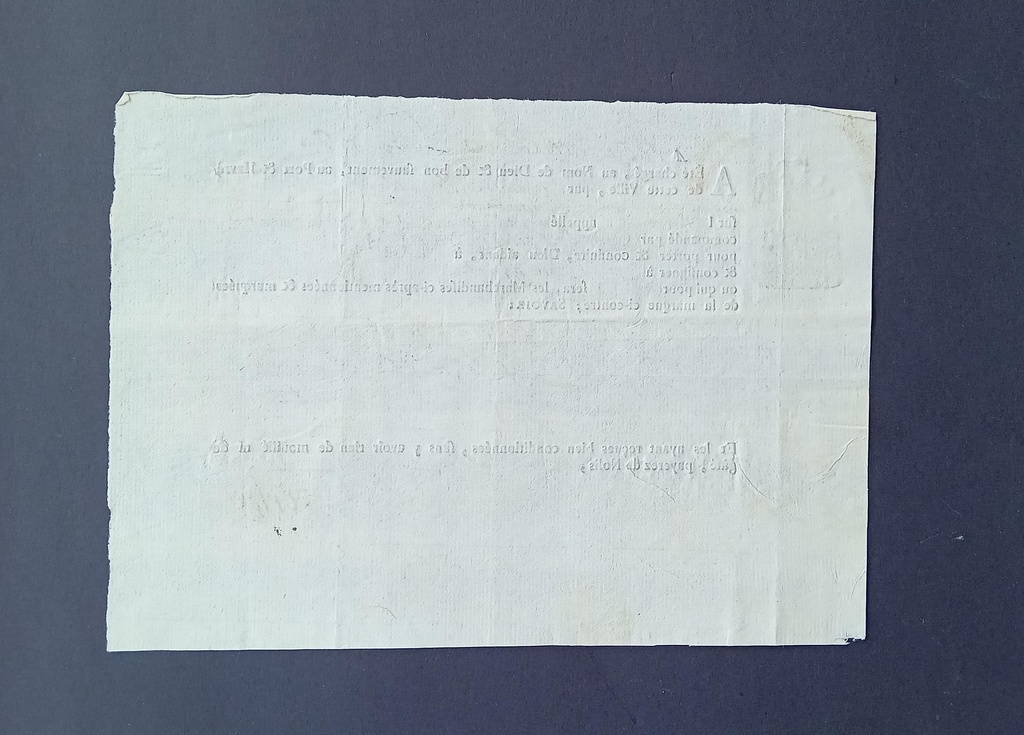 A Eté chargé, au Nom de Dieu & de bon sauvement, au Port & Havre
de cette Ville, par
sur l appellé
commandé par
pour porter & conduire, Dieu aidant, à
& consigner à
ou qui pour sera, les Marchandises ci-après mentionnées & marquées
de la marque ci-contre; SAVOIR:
Et les ayant reçues bien conditionnées, sans y avoir rien de mouillé ni de
Gâté, payerez de Nolis,